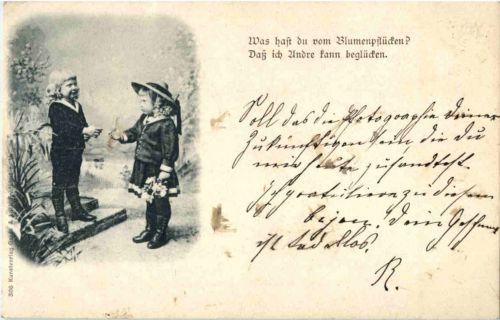 Was hast du vom Blumenpflücken?
Daß ich Andre kann beglücken.
Soll das die Photographie deiner
Zukünftigen sein die du
mir heute zusandtest.
Ich gratuliere zu diesem
dein
ist tadellos.
R.
306 Kunstverlag